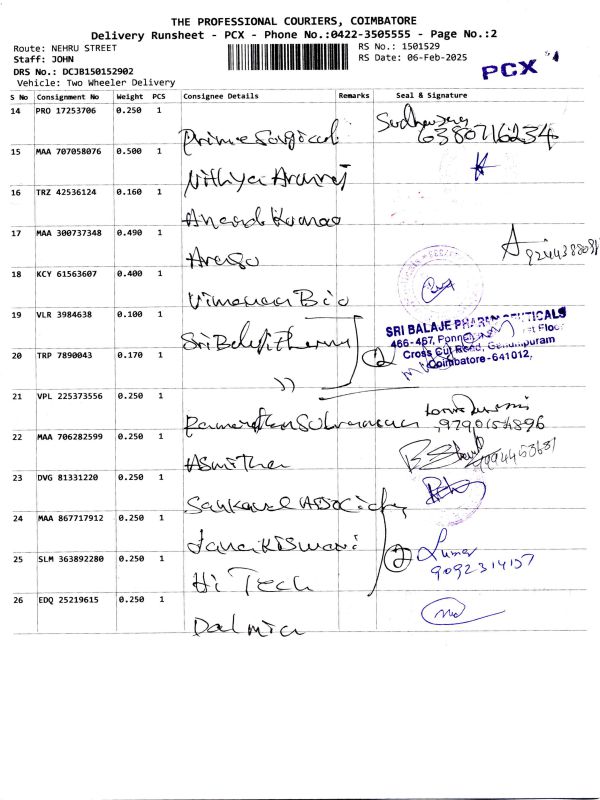 THE PROFESSIONAL COURIERS, COIMBATORE
Delivery Runsheet - PCX - Phone No.:0422-3505555 - Page No.:2
Route: NEHRU STREET
RS No.: 1501529
Staff: JOHN
RS Date: 06-Feb-2025
DRS No.: DCJB150152902
PCX
Vehicle: Two Wheeler Delivery
S No Consignment No Weight PCS Consignee Details Remarks Seal & Signature
14 PRO 17253706 0.250 1
Prime Surgical
6380716234
15 MAA 707058076 0.500 1
Nithya
16 TRZ 42536124 0.160 1
Anand Kumar
17 MAA 300737348 0.490 1
18 KCY 61563607 0.400 1
Bio
19 VLR 3984638 0.100 1
Sri Balaji
SRI BALAJE PHARMACEUTICALS
Cross Cut Road, Gandhipuram
Coimbatore-641012,
20 TRP 7890043 0.170 1
2
21 VPL 225373556 0.250 1
22 MAA 706282599 0.250 1
Asmitha
9994453631
23 DVG 81331220 0.250 1
24 MAA 867717912 0.250 1
25 SLM 363892280 0.250 1
Hi Tech
2
Kumar
9092314157
26 EDQ 25219615 0.250 1
Dalmia